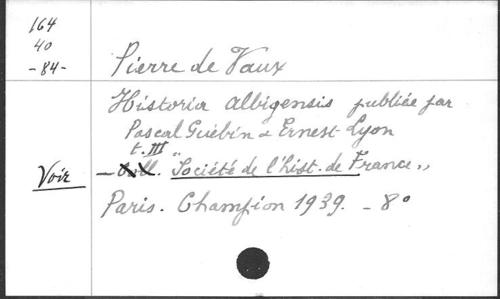 164
40
-84-
Pierre de Vaux
Historia albigensis publiée par
Pascal Guébin & Ernest Lyon
t. III
Voir
- Coll. "Société de l'hist. de France"
Paris. Champion 1939. - 8°